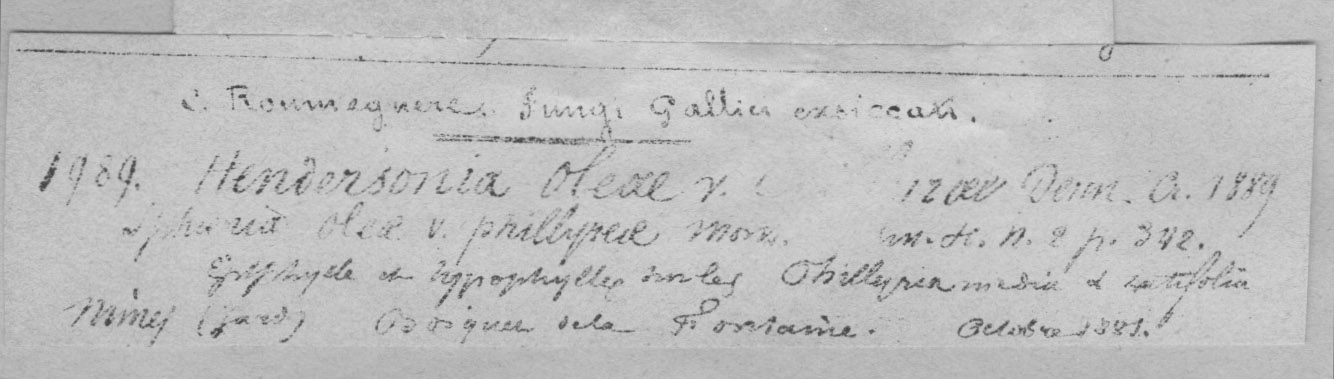 C. Roumeguere. Fungi Gallici exsiccati.
1989. Hendersonia Oleae v. Denn. Cr. 1889
Oleae v. phillyreae Mon. n. 2 p. 342.
Epiphylle et hypophylle sur les Phillyrea media & latifolia
Nimes (Gard) Bosquet de la Fontaine. Octobre 1881.